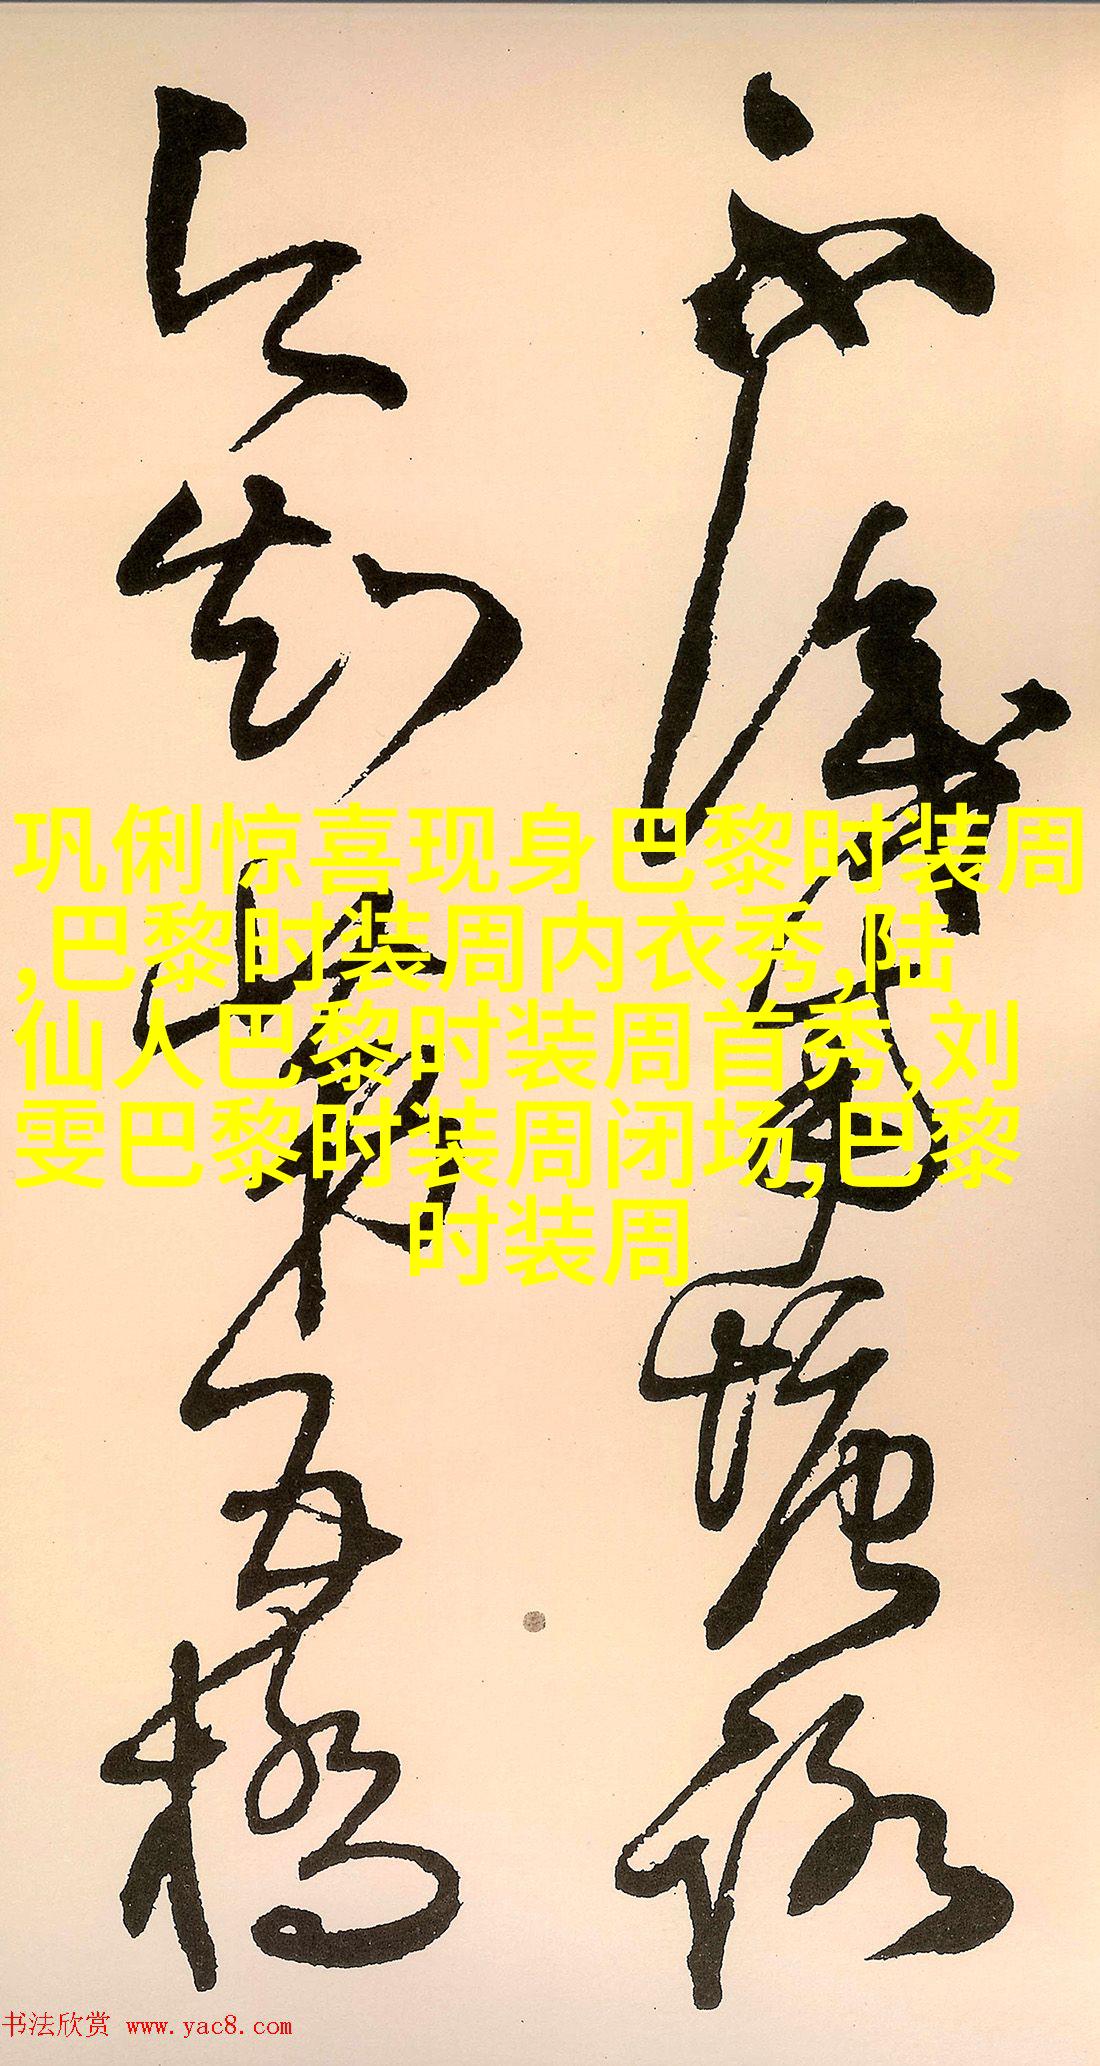 不識南塘路
今知第五橋
巩俐惊喜现身巴黎时装周
,巴黎时装周内衣秀,陆
仙人巴黎时装周首秀,刘
雯巴黎时装周闭场,巴黎
时装周
书法欣赏 www.yac8.com